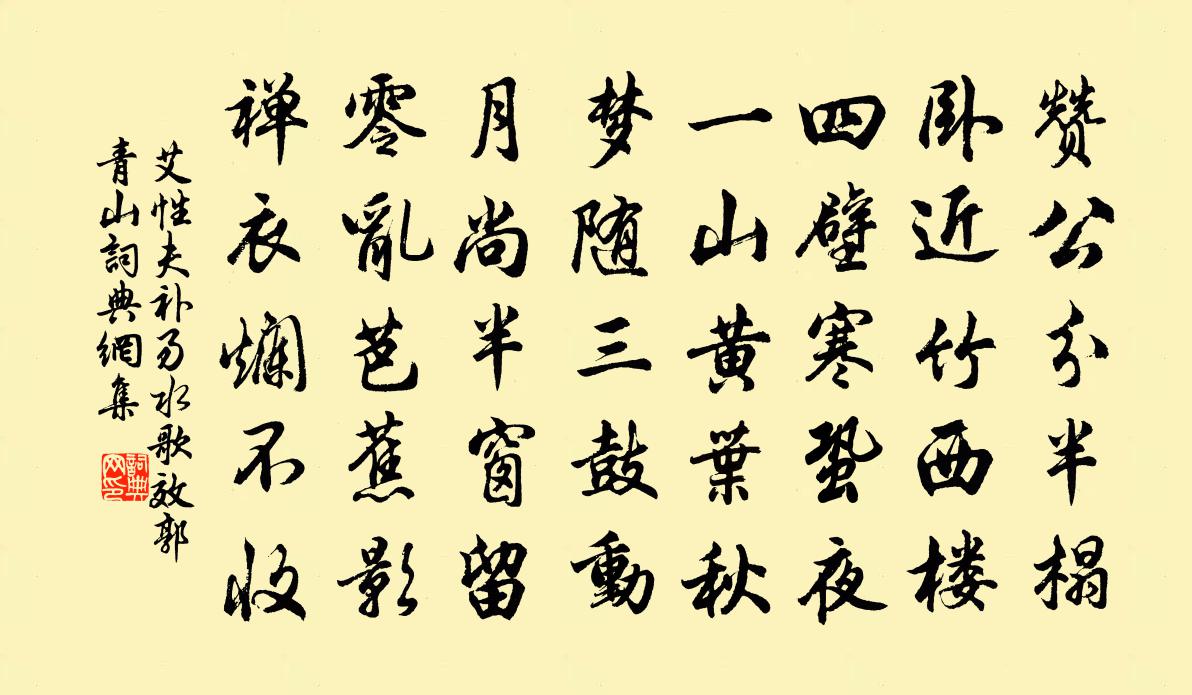 赞公分半榻
卧近竹西楼
四壁寒蛩夜
一山黄葉秋
梦随三鼓動
月尚半窗留
零亂芭蕉影
禅衣爛不收
艾性夫补易水歌效郭
青山詞典網集
詞典
网印